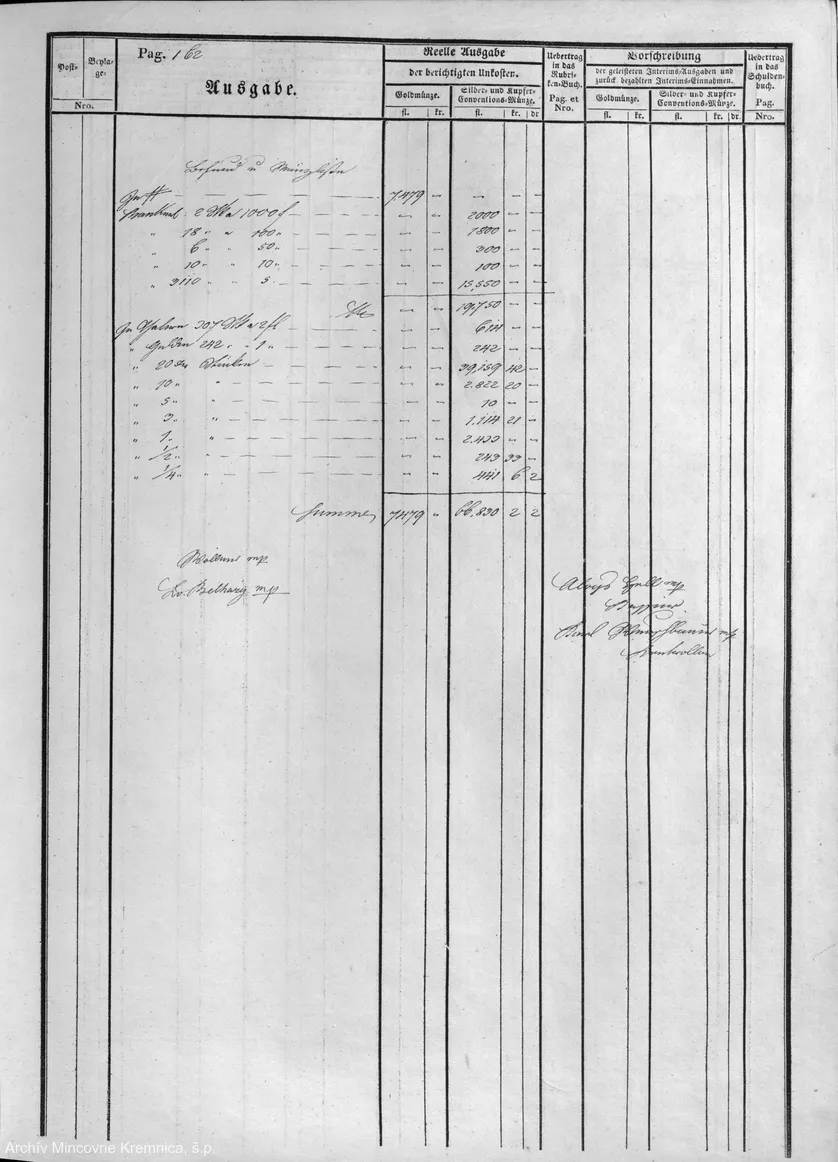 Post-
Beyla-
ge-
Nro.
Pag. 162
Ausgabe.
Reelle Ausgabe
der berichtigten Unkosten.
Goldmünze.
Silber- und Kupfer-
Conventions-Münze.
fl. kr. fl. kr. dr
Uebertrag
in das
Rubri-
ken-Buch.
Pag. et
Nro.
Vorschreibung
der geleisteten Interims-Ausgaben und
zurück bezahlten Interims-Einnahmen.
Goldmünze.
Silber- und Kupfer-
Conventions-Münze.
fl. kr. fl. kr. dr.
Uebertrag
in das
Schulden-
buch.
Pag.
Nro.
Befund u Münzliste
In # — — — — 7.479 — — — —
2 Stk a 1000 f — — — — 2000 — —
" 18 " " 100 " — — — — 1800 — —
" 6 " " 50 " — — — — 300 — —
" 10 " " 10 " — — — — 100 — —
" 3110 " " 5 — — — — 15,550 — —
— — 19,750 — —
In Thalern 307 Stk a 2 fl — — — 614 — —
" Gulden 242 " " 1 " — — — 242 — —
" 20 Stücken — — — 39,159 42 —
" 10 " " — — — 2.822 20 —
" 5 " " — — — 10 — —
" 3 " " — — — 1.114 21 —
" 1 " " — — — 2.433 — —
" 1/2 " " — — — 243 33 —
" 1/4 " " — — — 441 6 2
Summe 7479 " 66,830 2 2
mp
mp
Aloys Hell mp
Karl mp
Kontrollor
Archív Mincovne Kremnica, š.p.